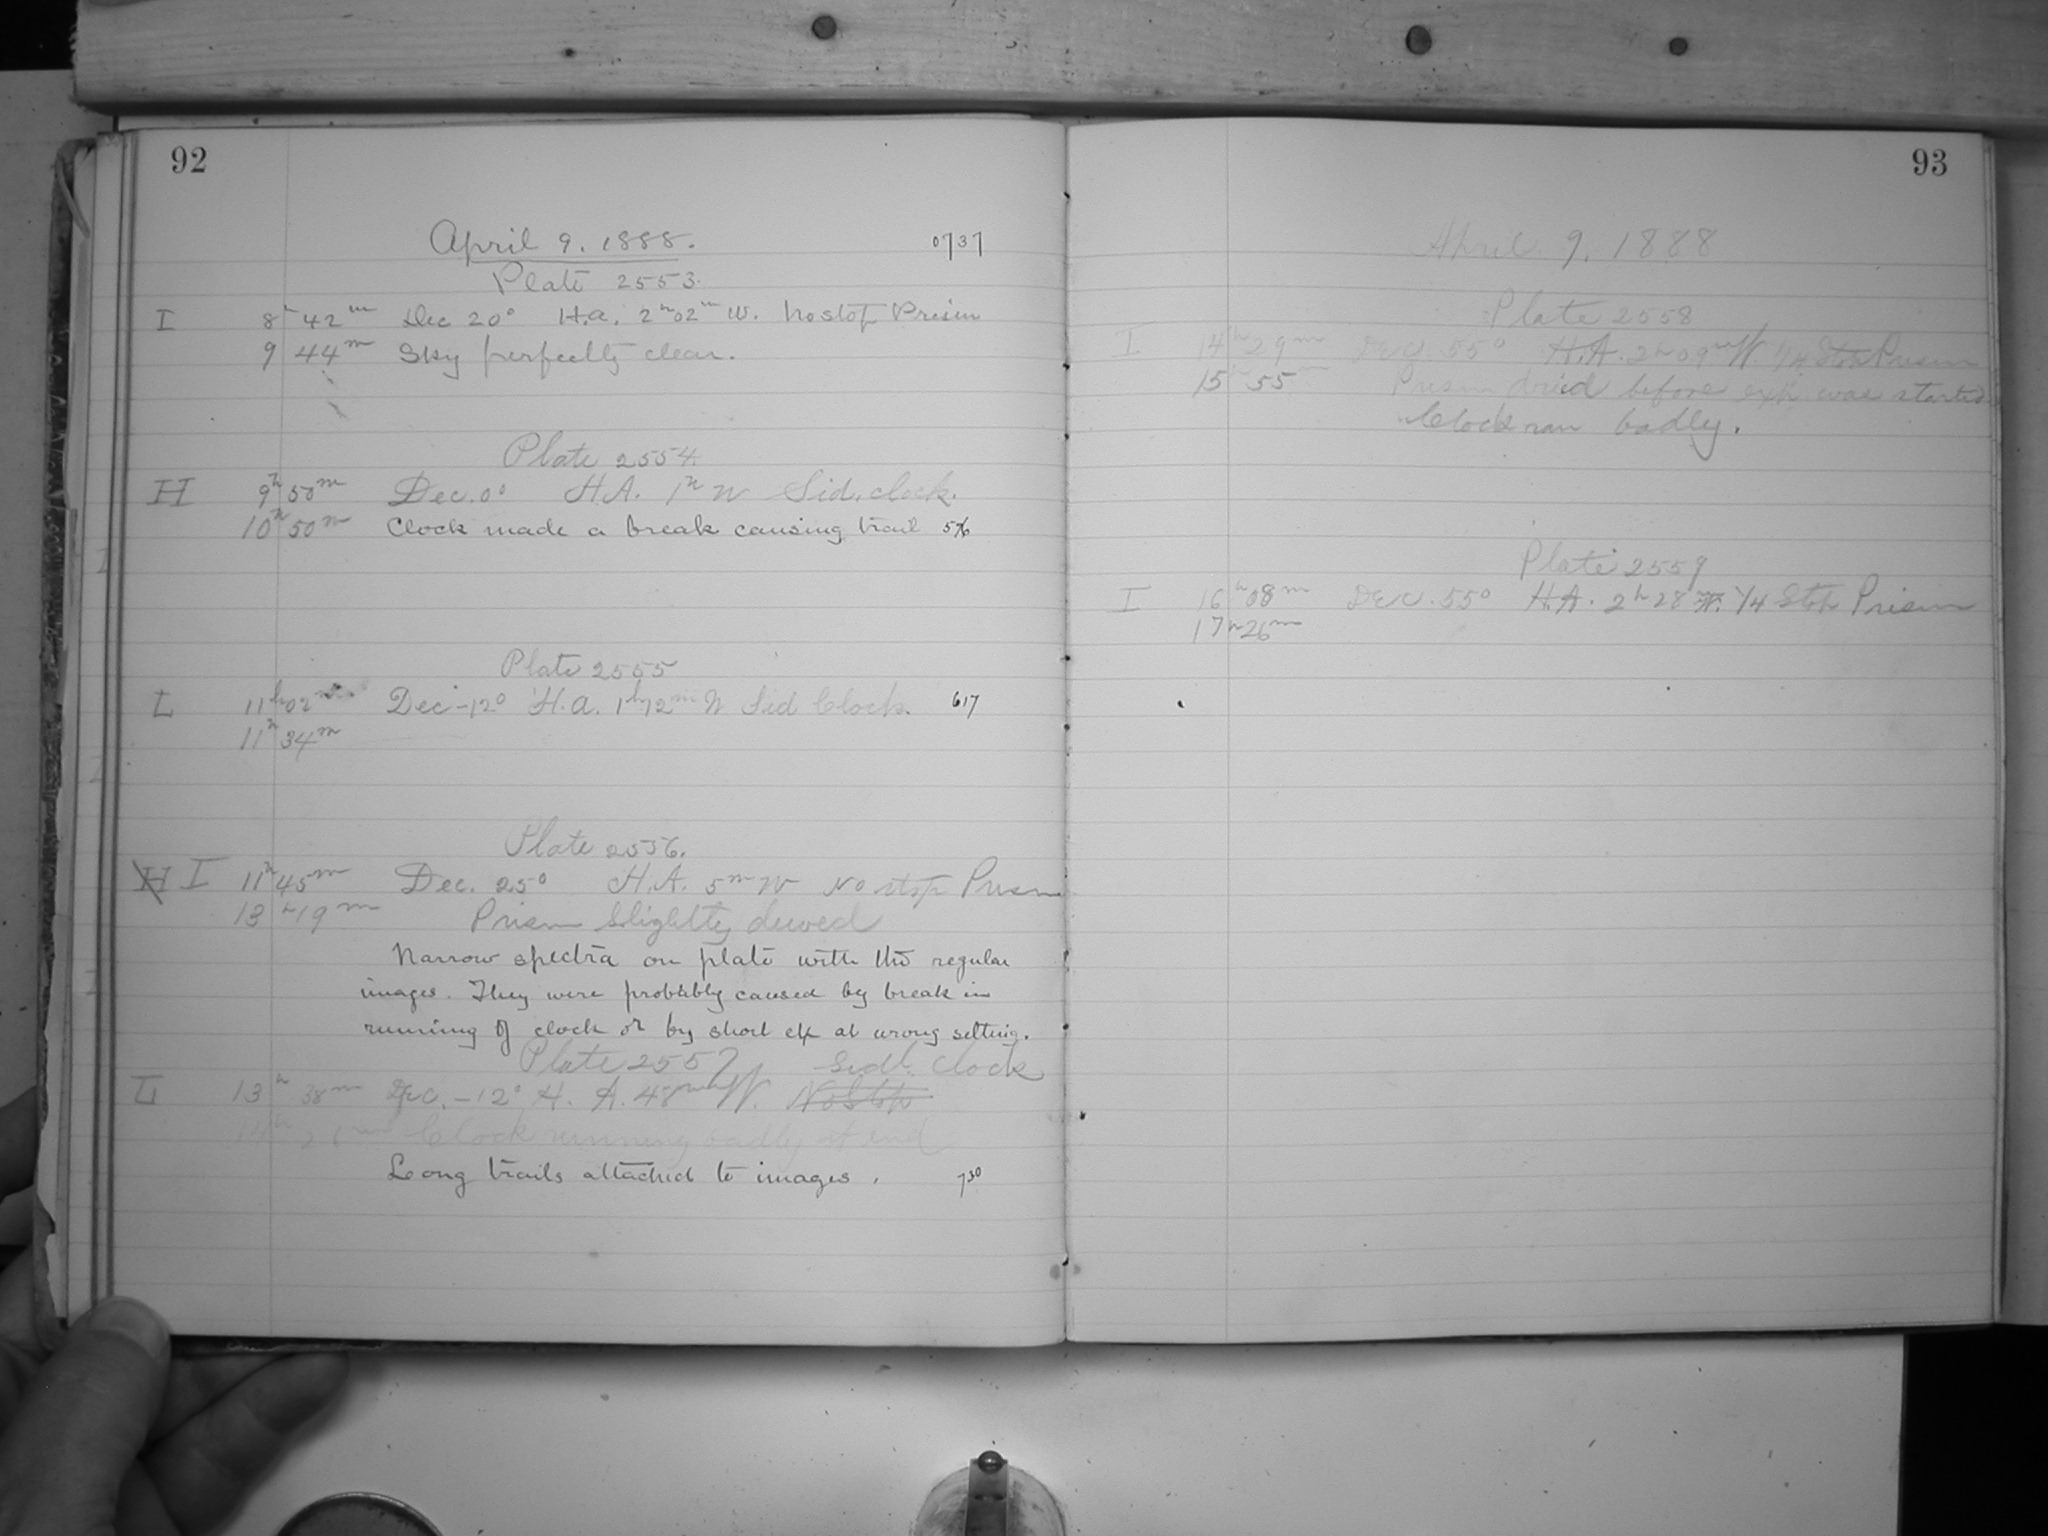 92
April 9. 1888. 0737
Plate 2553.
I 8h 42m Dec 20° H.a. 2h 02m W. No stop Prism
9 44m Sky perfectly clear.
Plate 2554
H 9h 50m Dec. 0° H.A. 1h W Sid. clock.
10h 50m Clock made a break causing trail 576
Plate 2555
L 11h 02m Dec -12° H.a. 1h 12m W Sid Clock. 617
11h 34m
Plate 2556.
H I 11h 45m Dec. 25° H.A. 5m W No stop Prism
13h 19m Prism Slightly dewed
Narrow spectra on plate with the regular
images. They were probably caused by break in
running of clock or by short ex at wrong setting.
Plate 2557 Sidl. Clock
L 13h 38m Dec. -12° H. A. 48m W. No Stop
14h Clock running badly at end
Long trails attached to images. 730
93
April 9, 1888
Plate 2558
I 14h 29m Dec. 55° H.A. 2h 09m W. 1/4 Stop Prism
15h 55m Prism dried before exp. was started
Clock ran badly.
Plate 2559
I 16h 08m Dec. 55° H.A. 2h 28 W. 1/4 Stop Prism
17h 26m